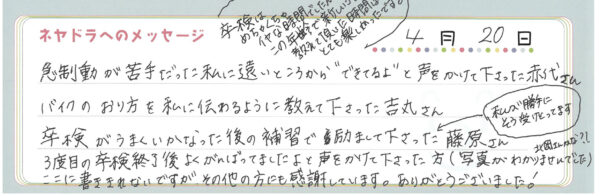 卒検は
めちゃくちゃ
イヤな時間でしたが
この年齢で楽しい
教えて頂いた時間は
とても楽しかったです!
ネヤドラへのメッセージ
4月20日
急制動が苦手だった私に遠いところから"できるよ"と声をかけて下さった赤代さん
バイクのおり方を私に伝わるように教えて下さった吉丸さん
私が勝手に
そう受けとってます
卒検がうまくいかなかった後の補習で励まして下さった藤原さん
北園さんかな?!
3度目の卒検終了後よくがんばってましたよと声をかけて下さった方(写真がわかりませんでした)
ここに書ききれないですがその他の方にも感謝しています。ありがとうございました!